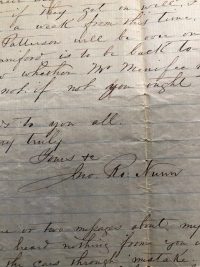 if they get on well, I
week from this time,
Patterson will be over on
ford is to be back to
whether Mr Menifee
not. if not you ought
to you all.
truly
Yours &c
Jno R. Nunn
or two messages about my
heard nothing from you
the cars through mistake.